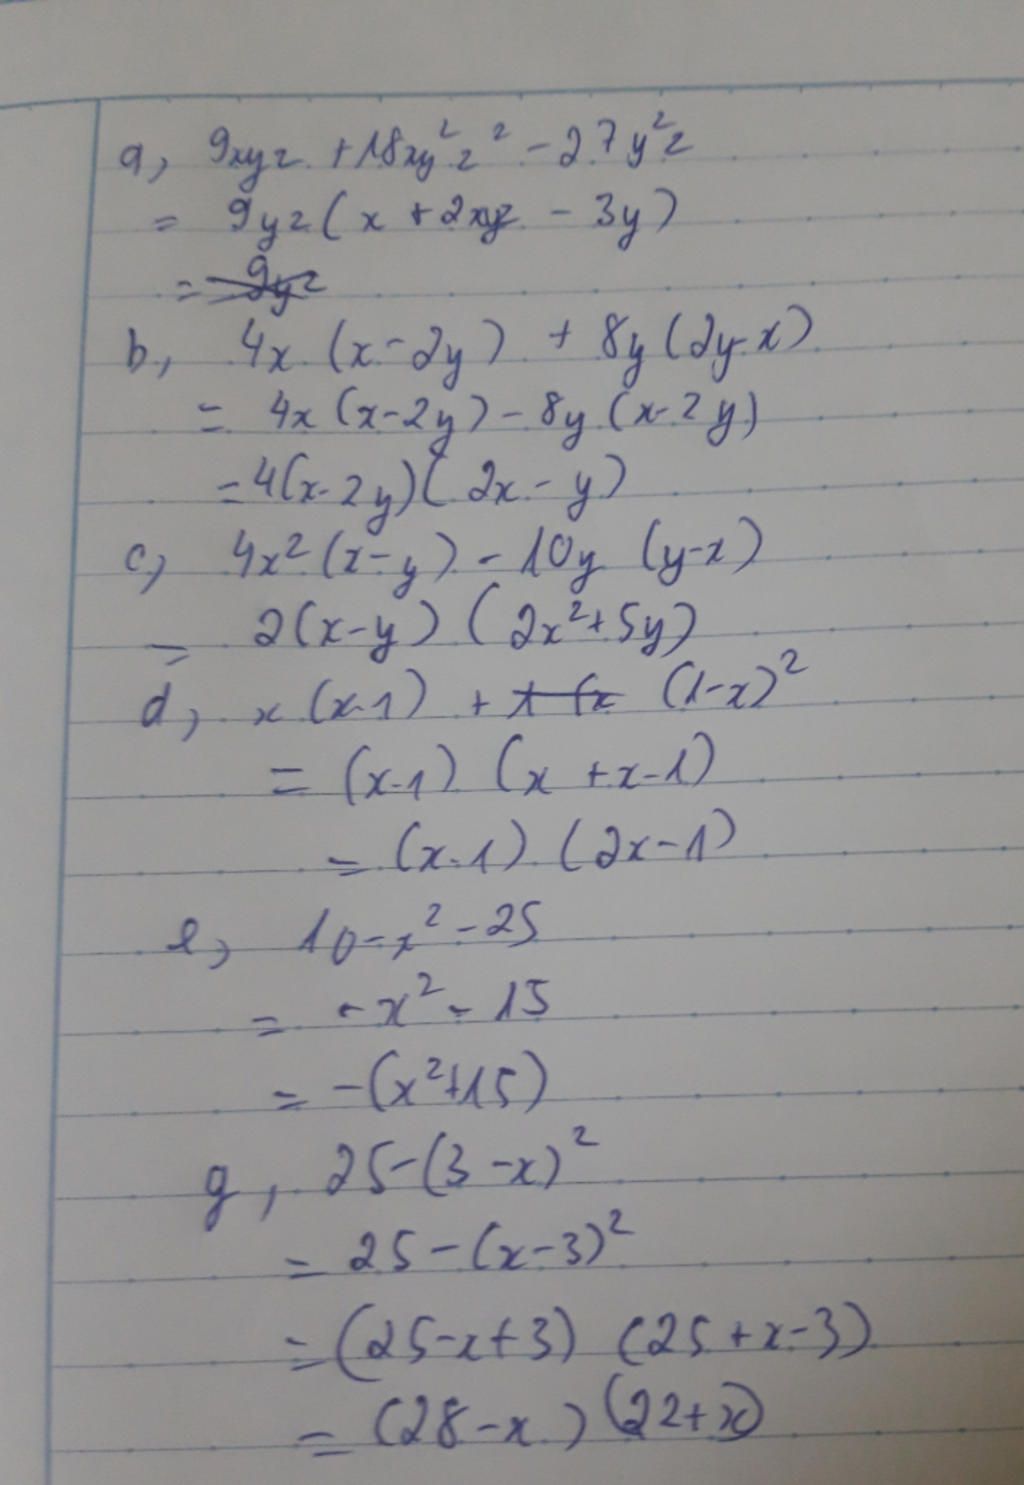 a, 9xyz + 18xy²z² - 27y²z
= 9yz(x + 2xyz - 3y)
= 9yz
b, 4x (x-2y) + 8y(2y-x)
= 4x(x-2y) - 8y(x-2y)
= 4(x-2y)(2x-y)
c, 4x²(x-y) - 10y (y-x)
= 2(x-y) (2x²+5y)
d, x(x-1) + (1-x)²
= (x-1) (x+x-1)
= (x-1) (2x-1)
e, 10-x²-25
= -x²-15
= -(x²+15)
g, 25-(3-x)²
= 25-(x-3)²
= (25-x+3) (25+x-3)
= (28-x) (22+x)